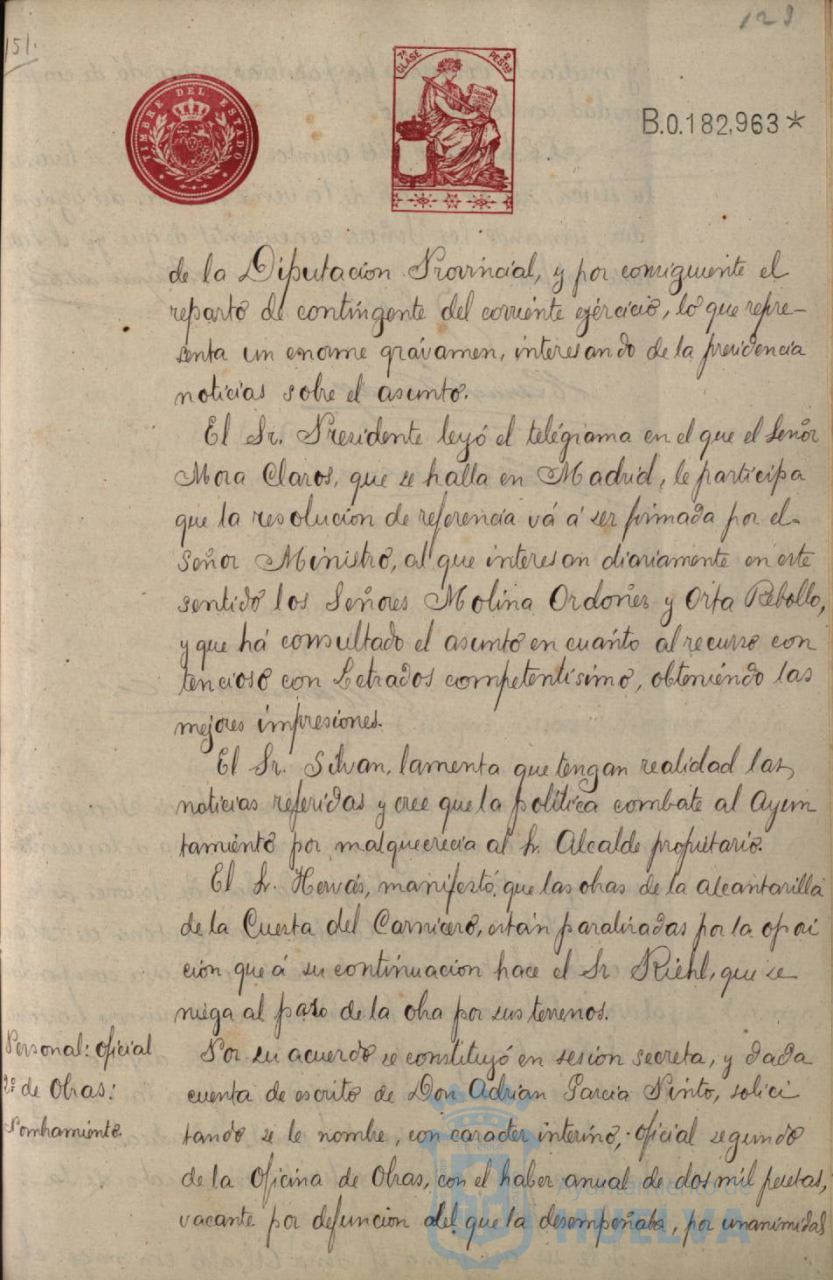 151.
123
TIMBRE DEL ESTADO
7ª CLASE 2 PESTAS
B.0.182,963*
de la Diputación Provincial, y por consiguiente el
reparto de contingente del corriente ejércicio, lo que repre-
senta un enorme grávamen, interesando de la presidencia
noticias sobre el asunto.
El Sr. Presidente leyó el telégrama en el que el Señor
Mora Claros, que se halla en Madrid, le participa
que la resolución de referencia vá á ser firmada por el
Señor Ministro, al que interesan diariamente en este
sentido los Señores Molina Ordoñez y Orta Rebollo,
y que há consultado el asunto en cuanto al recurso con
tencioso con Letrados competentisimo, obteniéndo las
mejores impresiones.
El Sr. Silvan, lamenta que tengan realidad las
noticias referidas y cree que la politica combate al Ayun
tamiento por malquerecia al Sr. Alcalde propietario.
El Sr. Hervás, manifestó que las obras de la alcantarilla
de la Cuesta del Carnicero, están paralizadas por la oposi
ción que á su continuacion hace el Sr Riehl, que se
niega al paso de la obra por sus terrenos.
Personal: oficial
2º de Obras:
Nombramiento.
Por su acuerdo se constituyó en sesión secreta, y dada
cuenta de escrito de Don Adrian Garcia Pinto, solici
tando se le nombre, con caracter interino, oficial segundo
de la Oficina de Obras, con el haber anual de dos mil pesetas,
vacante por defuncion del que la desempeñaba, por unanimidad
Ayuntamiento de
HUELVA